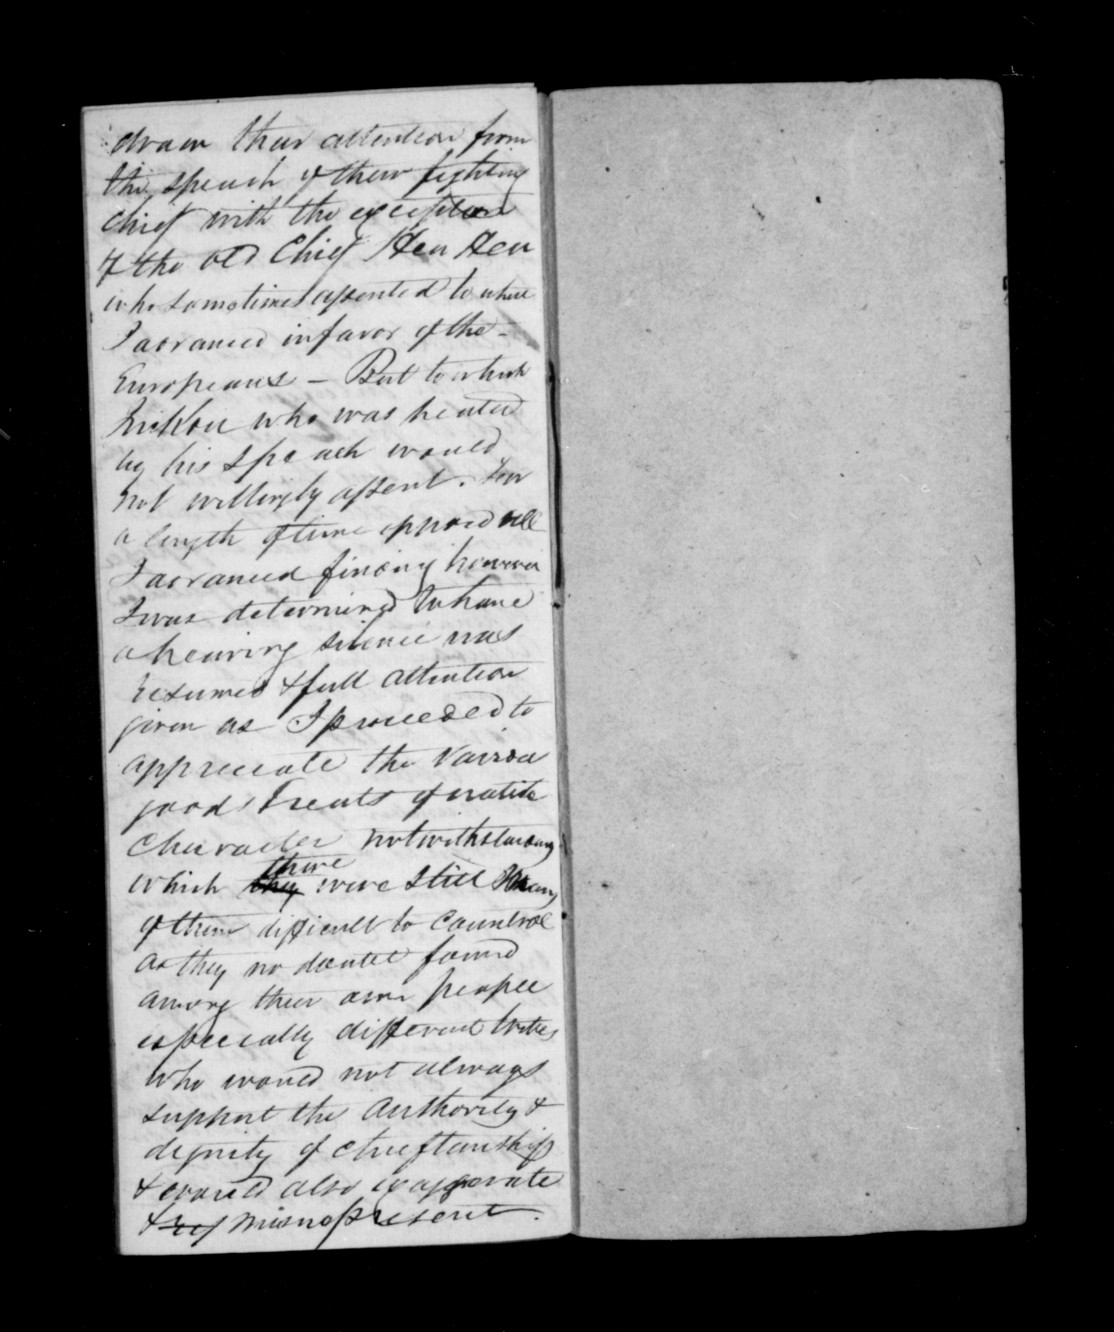 draw their attention from
the speech of their fighting
chief with the exception
of the old Chief Heu Heu
who sometimes assented to what
I advanced in favor of the
Europeans – But to which
who was heated
by his speach would
not willingly assent. For
a length of time opposed all
I advanced finding however
I was determined to have
a hearing silence was
resumed & full attention
given as I proceeded to
appreciate the Various
good Treats of native
Character notwithstanding
which ~~they~~ there were still Many
of them difficult to Countrol
as they no doubt found
among their own people
especially different tribes
who would not always
support the Authority &
dignity of chieftanship
& would also exaggerate
& ~~rep~~ misrepresent.